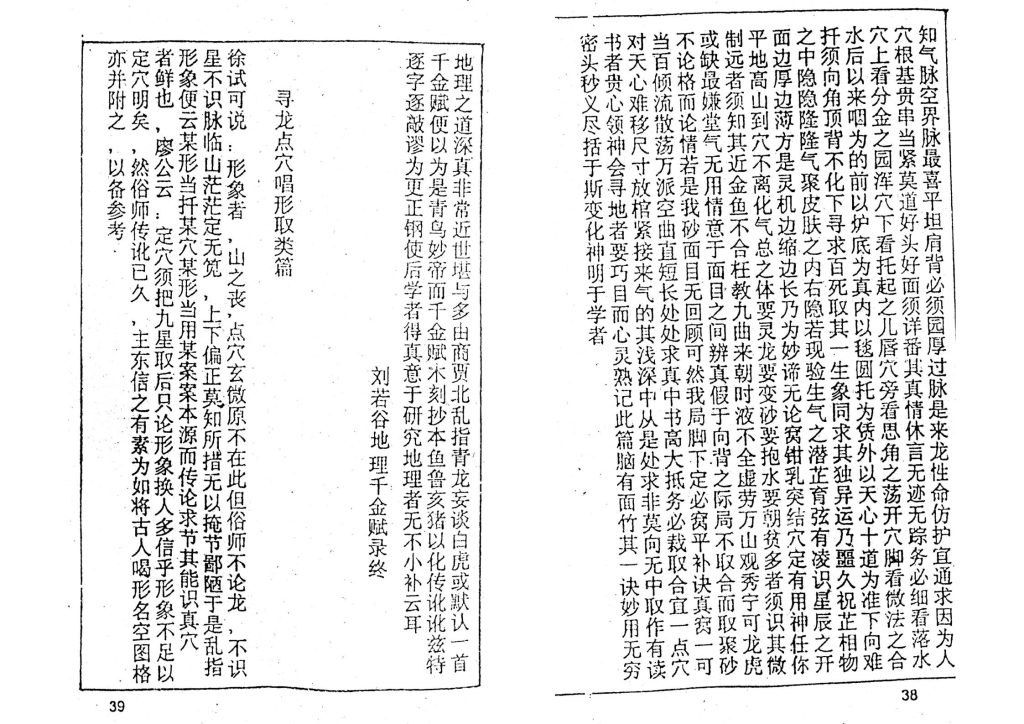 知气脉空界脉最喜平坦肩背必须园厚过脉是来龙性命仿护宜通求因为人
穴根基贵串当紧莫道好头好面须详番其真情休言无迹无踪务必细看落水
穴上看分金之园浑穴下看托起之儿唇穴旁看思角之荡开穴脚看微法之合
水后以来咽为的前以炉底为真内以毬圆托为赁外以天心十道为准下向难
扦须向角顶背不化下寻求百死取其一生象同求其独异运乃噩久祝芷相物
之中隐隐隆隆气聚皮肤之内右隐若现验生气之潜芷育弦有凌识星辰之开
面边厚边薄方是灵机边缩边长乃为妙谛无论窝钳乳突结穴定有用神任你
平地高山到穴不离化气总之体要灵龙要变砂要抱水要朝贫多者须识其微
制远者须知其近金鱼不合枉教九曲来朝时液不全虚劳万山观秀宁可龙虎
或缺最嫌堂气无用情意于面目之问辨真假于向背之际局不取合而取聚砂
不论格而论情若是我砂面目无回顾可然我局脚下定必窝平补诀真窝一可
当百倾流散荡万派空曲直短长处处求真中书离大抵务必栽取合宜一点穴
对天心难移尺寸放棺紧接来气的其浅深中从是处求非莫向无中取作有读
书者贵心领神会寻地者要巧目而心灵熟记此篇脑有面竹其一诀妙用无穷
密头秒义尽括于斯变化神明于学者
38
地理之道深真非常近世堪与多由商贾北乱指青龙妄谈白虎或默认一首
千金赋便以为是青乌妙帝而千金赋木刻抄本鱼鲁亥猪以化传讹讹兹特
逐字逐敲谬为更正钢使后学者得真意于研究地理者无不小补云耳
刘若谷地理千金赋录终
寻龙点穴唱形取类篇
徐试可说：形象者，山之丧，点穴玄微原不在此但俗师不论龙，不识
星不识脉临山茫茫定无笕，上下偏正莫知所措无以掩节鄙陋于是乱指
形象便云某形当扦某穴某形当用某案案本源而传论求节其能识真穴
者鲜也，廖公云：定穴须把九星取后只论形象换人多信乎形象不足以
定穴明矣，然俗师传讹已久，主东信之有素为如将古人喝形名空图格
亦并附之，以备参考.
39